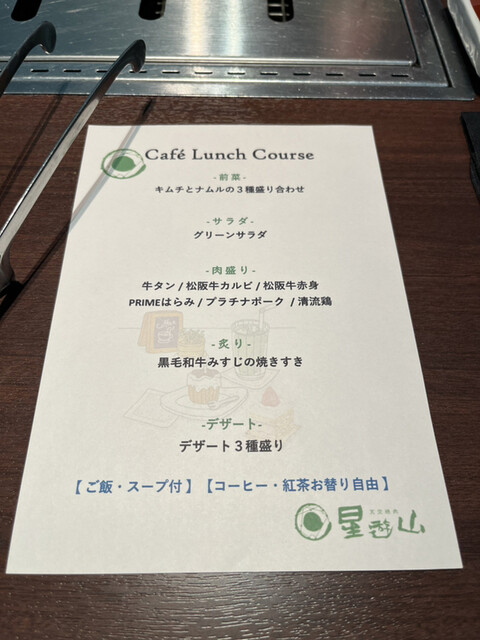 Café Lunch Course
-前菜-
キムチとナムルの３種盛り合わせ
-サラダ-
グリーンサラダ
-肉盛り-
牛タン / 松阪牛カルビ / 松阪牛赤身
PRIMEはらみ / プラチナポーク / 清流鶏
-炙り-
黒毛和牛みすじの焼きすき
-デザート-
デザート３種盛り
【 ご飯・スープ付 】【コーヒー・紅茶お替り自由 】
星遊山